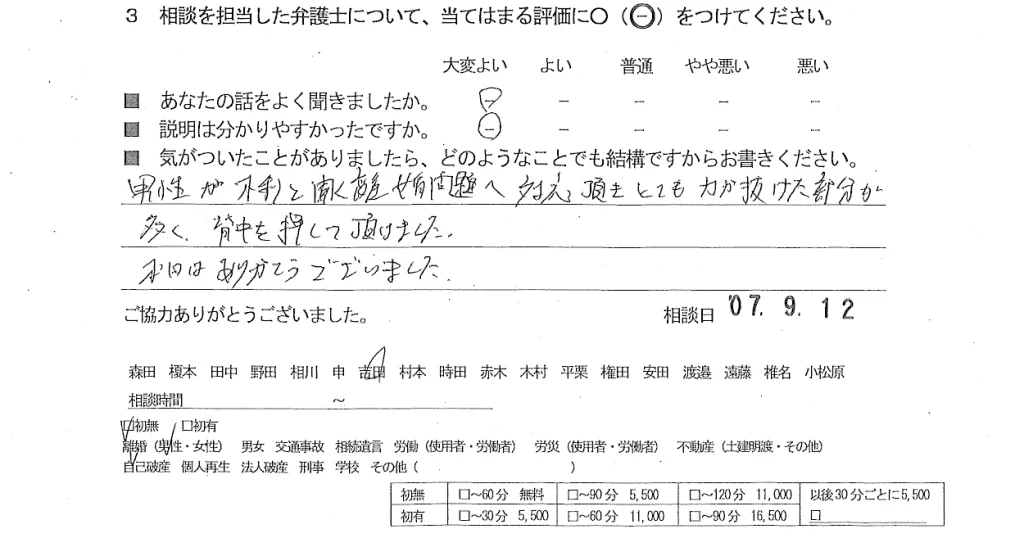 3 相談を担当した弁護士について、当てはまる評価に○（㊀）をつけてください。
大変よい よい 普通 やや悪い 悪い
■ あなたの話をよく聞きましたか。 － － － － －
■ 説明は分かりやすかったですか。 － － － － －
■ 気がついたことがありましたら、どのようなことでも結構ですからお書きください。
男性が不利と聞く 問題へ 頂きとても力が抜けた部分が
多く、背中を押して頂けました。
本日はありがとうございました。
ご協力ありがとうございました。 相談日 '07. 9. 12
森田 榎本 田中 野田 相川 申 吉田 村本 時田 赤木 木村 平栗 権田 安田 渡邉 遠藤 椎名 小松原
相談時間 ～
□初無 □初有
離婚（男性・女性） 男女 交通事故 相続遺言 労働（使用者・労働者） 労災（使用者・労働者） 不動産（土建明渡・その他）
自己破産 個人再生 法人破産 刑事 学校 その他（ ）
初無 □～60分 無料 □～90分 5,500 □～120分 11,000 以後30分ごとに5,500
初有 □～30分 5,500 □～60分 11,000 □～90分 16,500 □